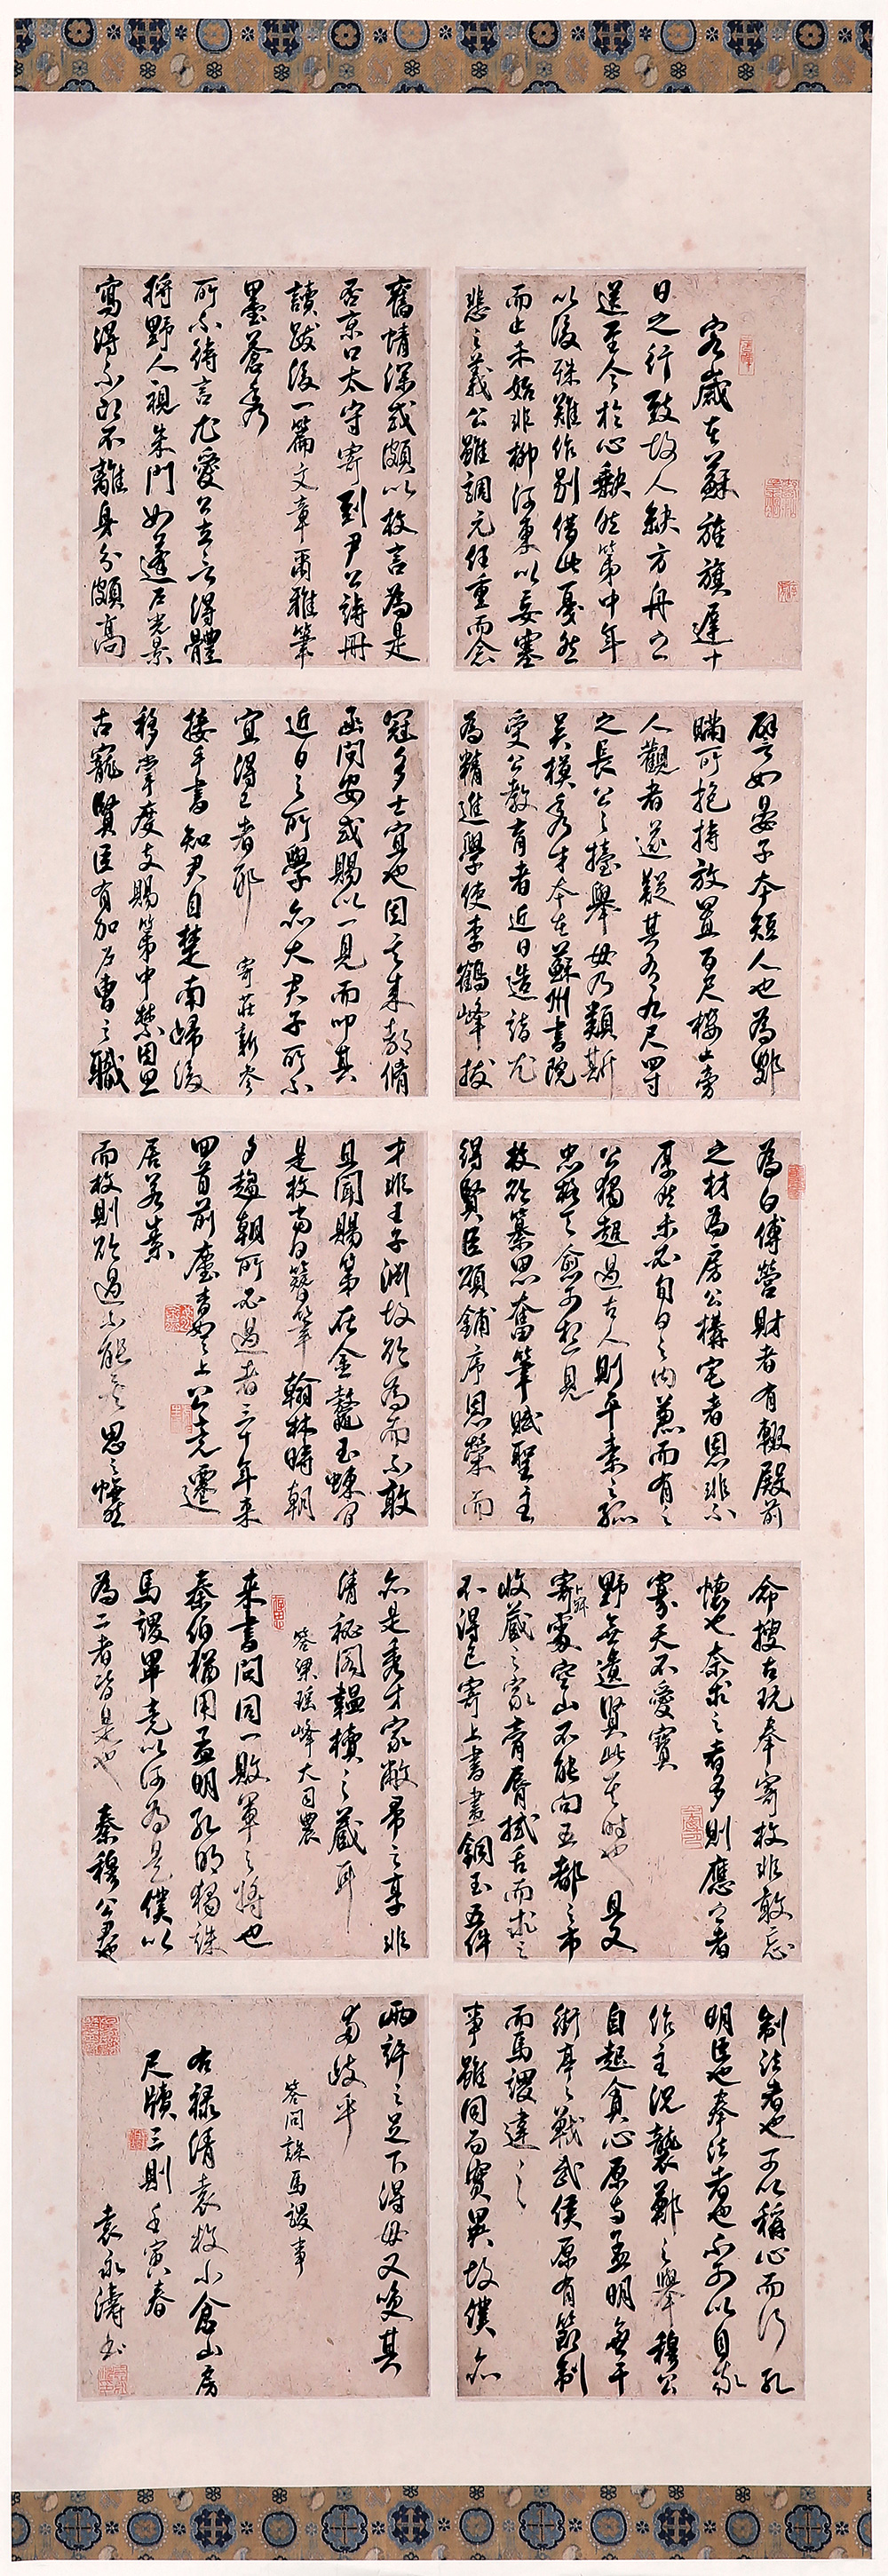 客歲在蘇旌旗遲十
日之行致故人缺方舟之
送至今於心歉然第中年
以後殊難作別借此戛然
而止未始非柳河東以妄塞
悲之義公雖調元任重而念
舊情深或頗以枚言為是
否京口太守寄到尹公詩冊
讀跋後一篇文章爾雅筆
墨蒼秀
所不待言尤愛公立言得體
將野人視朱門如蓬戶光景
寫得不即不離身分頗高
譬如晏子本短人也為鄋
瞞所抱持放置百尺樓上旁
人觀者遂疑其有九尺四寸
之長公之擡舉毋乃類斯
吳模秀才本在蘇州書院
受公教育者近日造詣尤
為精進學使李鶴峰拔
冠多士宜也因其來都脩
函問安或賜以一見而叩其
近日之所學亦大君子所不
宜得已者耶 寄莊新參
接手書知尹自楚南歸後
移掌度支賜第中禁因思
古寵賢臣有加戶曹之職
為白傅營財者有輟殿前
之材為房公構宅者恩非不
厚然未必旬日之內兼而有之
公獨超過古人則平素之孤
忠極天愈可想見
枚欲纂思奮筆賦聖主
得賢臣頌鋪序恩榮而
才非王子淵故欲為而不敢
且聞賜第在金鼇玉蝀間
是枚當日簪筆翰林時朝
夕趨朝所必過者三十年來
回首前塵杳如天上公克遷
居若素
而枚則欲過不能矣思之憮然
命搜古玩奉寄枚非敢忘
懷也奈求之者多則應之者
寡天不愛寶
野無遺賢此其時也 且又
寄處空山不能向五都之市
收藏之家膏唇拭舌而求之
不得已寄上書畫銅玉五件
亦是秀才家敝帚之享非
清祕閣韞櫝之藏耳
答梁瑤峰大司農
來書問同一敗軍之將也
秦伯猶用孟明孔明獨誅
馬謖畢竟以何為是僕以
為二者皆是也 秦穆公君也
制法者也可以稱心而行孔
明臣也奉法者也不可以自我
作主況襲鄭之舉穆公
自起貪心原與孟明無干
街亭之戰武侯原有節制
而馬謖違之
事雖同而實異故僕亦
兩許之足下得毋又笑其
兩歧乎
答問誅馬謖事
右錄清袁枚小倉山房
尺牘三則壬寅春
袁永濤書